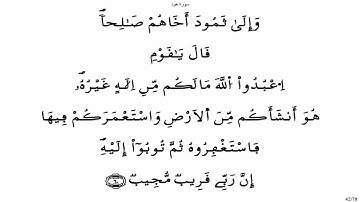 سورة هود
وَإِلَىٰ ثَمُودَ أَخَاهُمْ صَٰلِحاٗۖ
قَالَ يَٰقَوْمِ
اِ۟عْبُدُوا۟ اُ۬للَّهَ مَا لَكُم مِّنِ اِلَٰهٍ غَيْرُهُۥۖ
هُوَ أَنشَأَكُم مِّنَ اَ۬لَارْضِ وَاسْتَعْمَرَكُمْ فِيهَا
فَاسْتَغْفِرُوهُ ثُمَّ تُوبُوٓا۟ إِلَيْهِۖ
إِنَّ رَبِّے قَرِيبٞ مُّجِيبٞ ٦٠
42/78